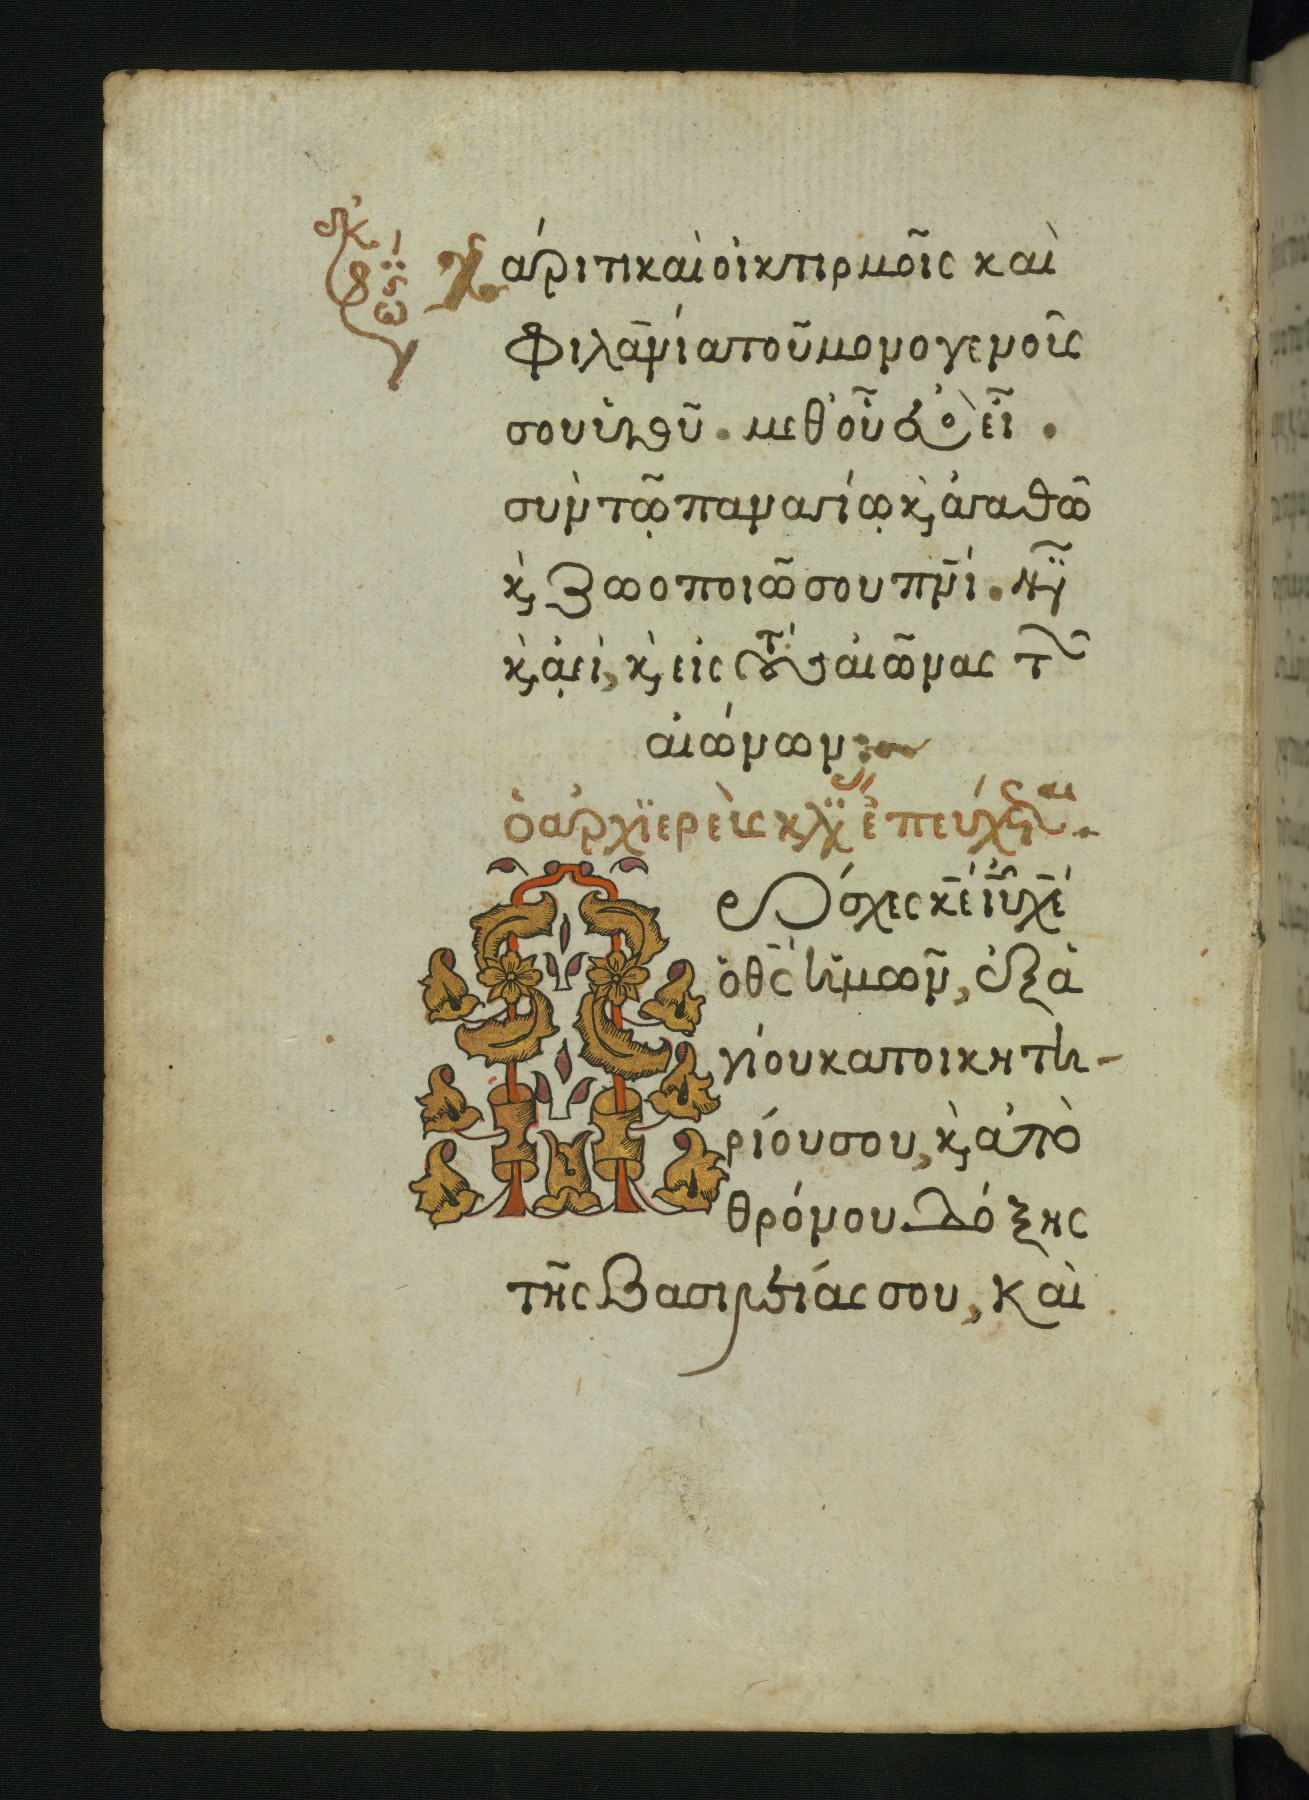 ἐκ
φώ
Χάριτι καὶ οἰκτιρμοῖς καὶ
φιλαν̅ίᾳ τοῦ μονογενοῦς
σου υἱοῦ. μεθ' οὗ εὐλογητὸς εἶ.
σὺν τῷ παναγίῳ κ̀ ἀγαθῷ
κ̀ ζωοποιῷ σου πν̅ι. νῦν
κ̀ ἀεὶ, κ̀ εἰς τοὺς αἰῶνας τῶν
αἰώνων:~
ὁ ἀρχϊερεὺς κλϊν ἐπεύχεται.
Πρόσχες κ̅ε ι̅υ χ̅ε
ὁ θ̅ς ἡμῶν, ἐξ ἁ
γίου κατοικητη-
ρίου σου, κ̀ ἀπὸ
θρόνου δόξης
τῆς βασιλείας σου, καὶ